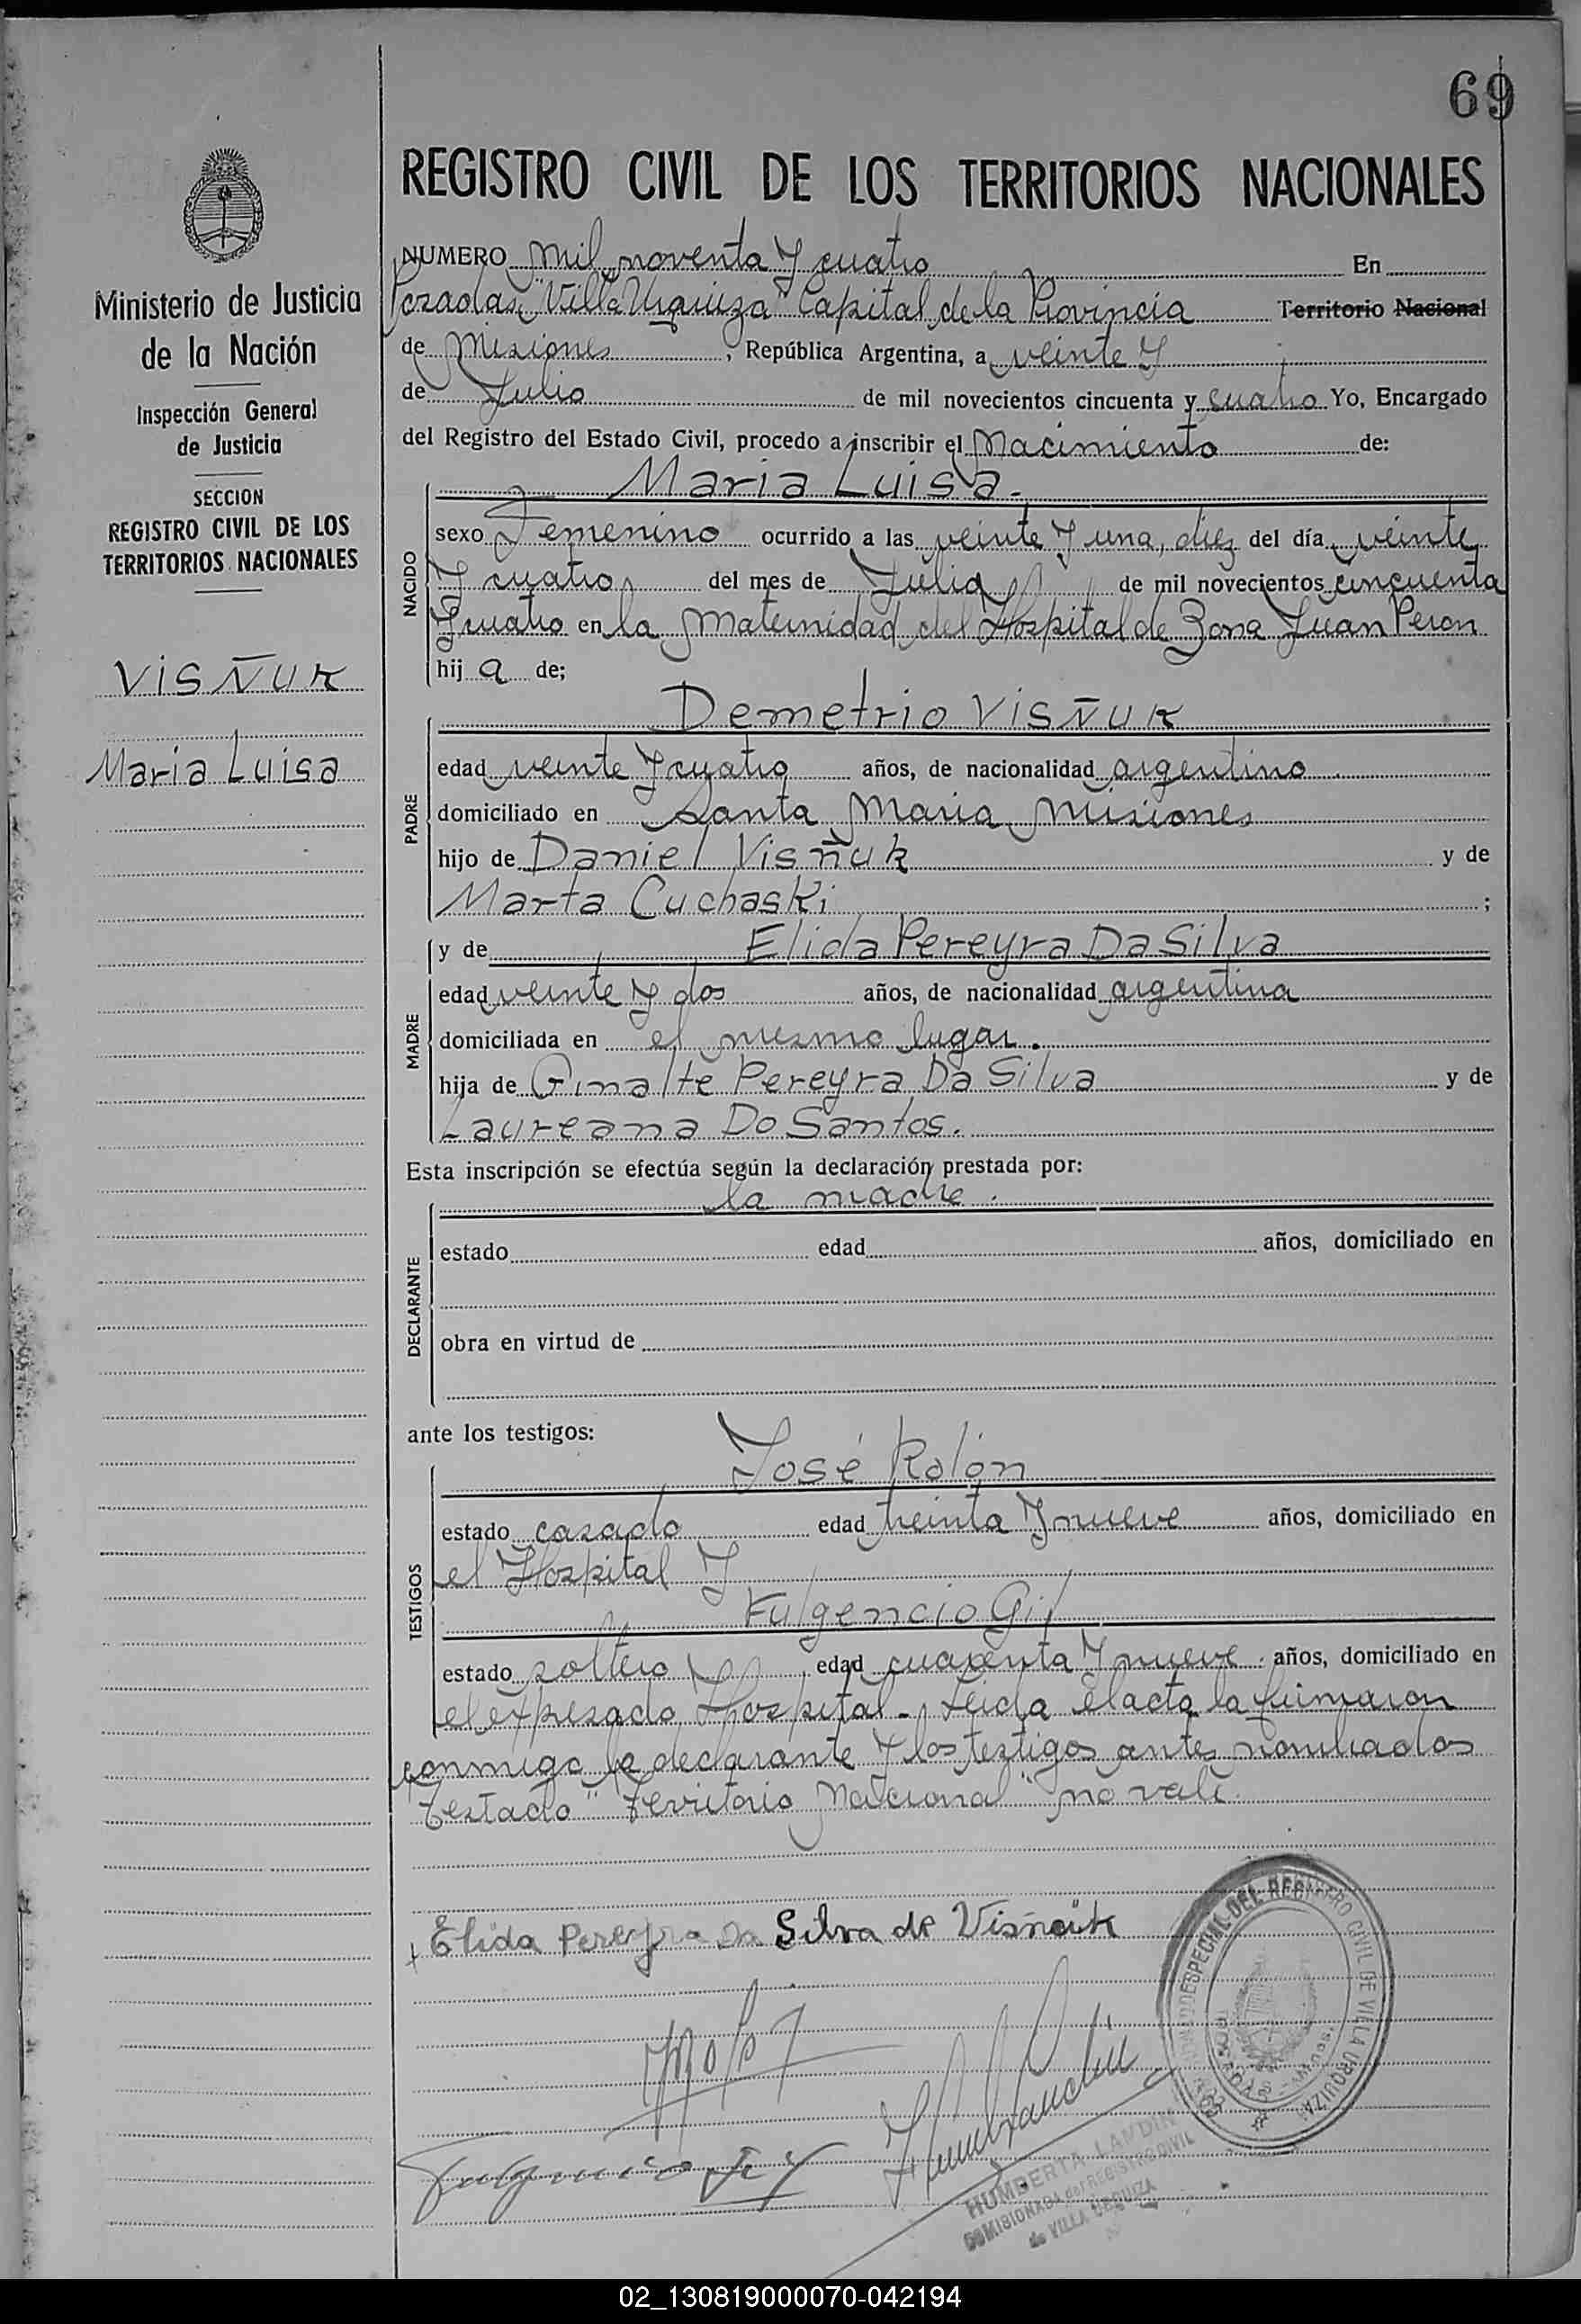 69
REGISTRO CIVIL DE LOS TERRITORIOS NACIONALES
Ministerio de Justicia
de la Nación
Inspección General
de Justicia
SECCION
REGISTRO CIVIL DE LOS
TERRITORIOS NACIONALES
VISÑUK
Maria Luisa
NUMERO mil noventa y cuatro En
Pozadas, "Villa Urquiza" Capital de la Provincia Territorio Nacional
de Misiones, República Argentina, a veinte y
de Julio de mil novecientos cincuenta y cuatro Yo, Encargado
del Registro del Estado Civil, procedo a inscribir el Nacimiento de:
NACIDO
Maria Luisa.
sexo Femenino ocurrido a las veinte y una, diez del día veinte
y cuatro del mes de Julio de mil novecientos cincuenta
y cuatro en la Maternidad del Hospital de Zona Juan Peron
hij a de;
PADRE
Demetrio VISÑUK
edad veinte y cuatro años, de nacionalidad argentino
domiciliado en Santa Maria Misiones
hijo de Daniel Visñuk y de
Marta Cuchaski ;
MADRE
y de Elida Pereyra Da Silva
edad veinte y dos años, de nacionalidad argentina
domiciliada en el mismo lugar.
hija de Ginalte Pereyra Da Silva y de
Laureana Do Santos.
Esta inscripción se efectúa según la declaración prestada por:
DECLARANTE
la madre.
estado edad años, domiciliado en
obra en virtud de
ante los testigos:
TESTIGOS
José Rolón
estado casado edad treinta y nueve años, domiciliado en
el Hospital y
Fulgencio Gil
estado soltero edad cuarenta y nueve años, domiciliado en
el expresado Hospital. Leida el acta la firmaron
conmigo la declarante y los testigos antes nombrados
Testado "Territorio Nacional" no vale.
Elida Pereyra Da Silva de Visnuk
Fulgencio Gil
REGISTRO CIVIL DE VILLA URQUIZA
HUMBERTA LANDIN
COMISIONADA del REGISTRO CIVIL
de VILLA URQUIZA
02_130819000070-042194